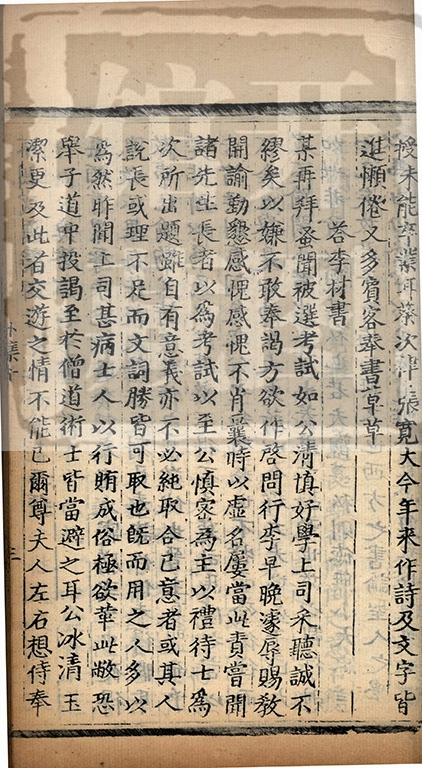 授未能卒業耳葵次律張寬大今年來作詩及文字皆
進懶倦又多賓客奉書草草
答李材書
某再拜蚤聞被選考試如公清慎好學上司采聽誠不
繆矣以嫌不敢奉謁方欲作啓問行李早晚遽辱賜教
開諭勤懇感愧感愧不肖曩時以虛名屢當此責嘗聞
諸先生長者以為考試以至公慎密為主以禮待士為
次所出題雖自有意義亦不必純取合己意者或其人
說長或理不足而文詞勝皆可取也既而用之人多以
為然昨聞上司甚病士人以行賄成俗極欲革此敝恐
舉子道中投謁至於僧道術士皆當避之耳公冰清玉
潔更及此者交遊之情不能已爾尊夫人左右想侍奉
外集十
三